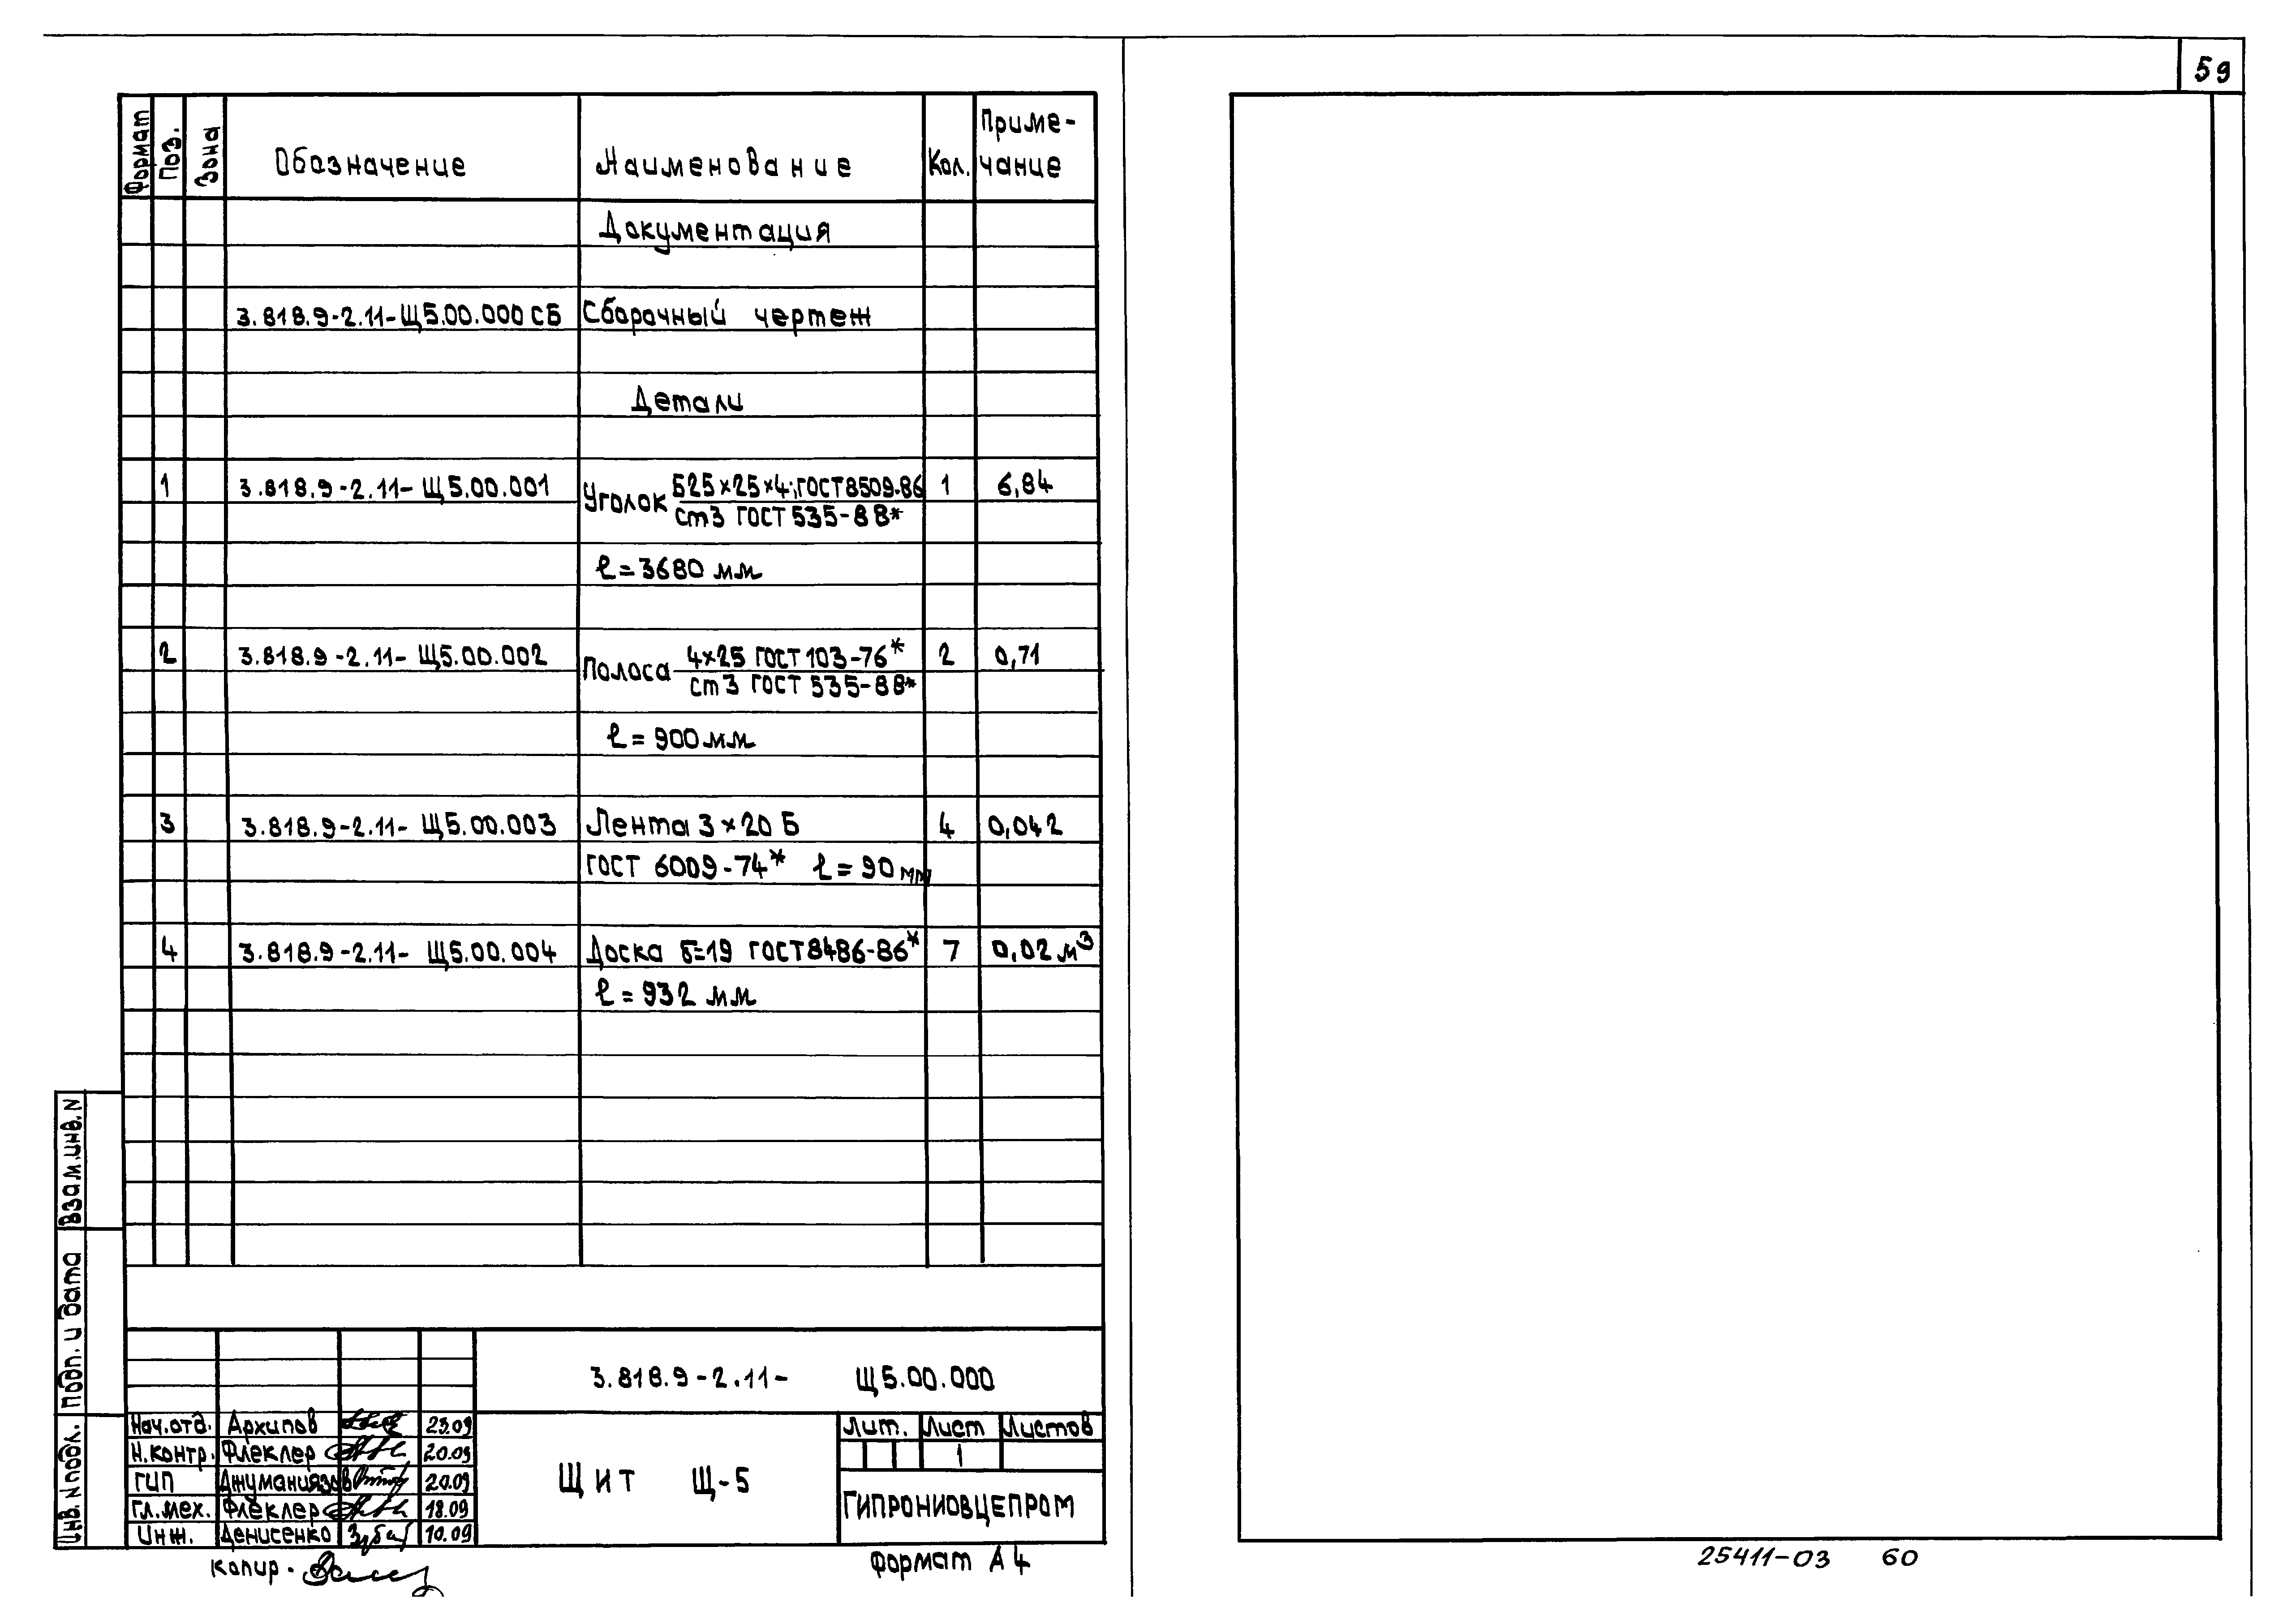 59
Формат Поз. Зона Обозначение Наименование Кол. Приме-
чание
Документация
3.818.9-2.11-Щ5.00.000 СБ Сборочный чертеж
Детали
1 3.818.9-2.11- Щ5.00.001 Уголок Б25×25×4; ГОСТ 8509-86 1 6,84
ст3 ГОСТ 535-88*
ℓ=3680 мм
2 3.818.9-2.11- Щ5.00.002 Полоса 4×25 ГОСТ 103-76* 2 0,71
ст3 ГОСТ 535-88*
ℓ=900 мм
3 3.818.9-2.11- Щ5.00.003 Лента 3×20 Б 4 0,042
ГОСТ 6009-74* ℓ=90 мм
4 3.818.9-2.11- Щ5.00.004 Доска Б=19 ГОСТ 8486-86* 7 0,02 м³
ℓ=932 мм
Взам.инв.N
Подп. и дата
Инв.N подл.
3.818.9-2.11- Щ5.00.000
Нач.отд. Архипов 23.09
Н.контр. Флеклер 20.09
ГИП Джуманиязов 20.09
Гл.мех. Флеклер 18.09
Инж. Денисенко 10.09
Щит Щ-5
Лит. Лист Листов
1
ГИПРОНИОВЦЕПРОМ
Копир.
Формат А4
25411-03 60